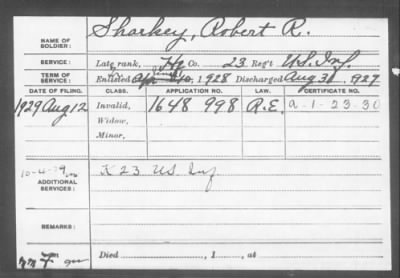 NAME OF SOLDIER: Sharkey, Robert R.
SERVICE: Late rank, Co. 23 Reg't U.S. Inf.
TERM OF SERVICE: Enlisted 1928 Discharged Aug 31 1929
DATE OF FILING. CLASS. APPLICATION NO. LAW. CERTIFICATE NO.
1929 Aug 12 Invalid, 1648 998 R.E. a-1-23-30
Widow,
Minor,
10-4-29
ADDITIONAL SERVICES: K 23 U.S. Inf
REMARKS:
Died , 1 , at